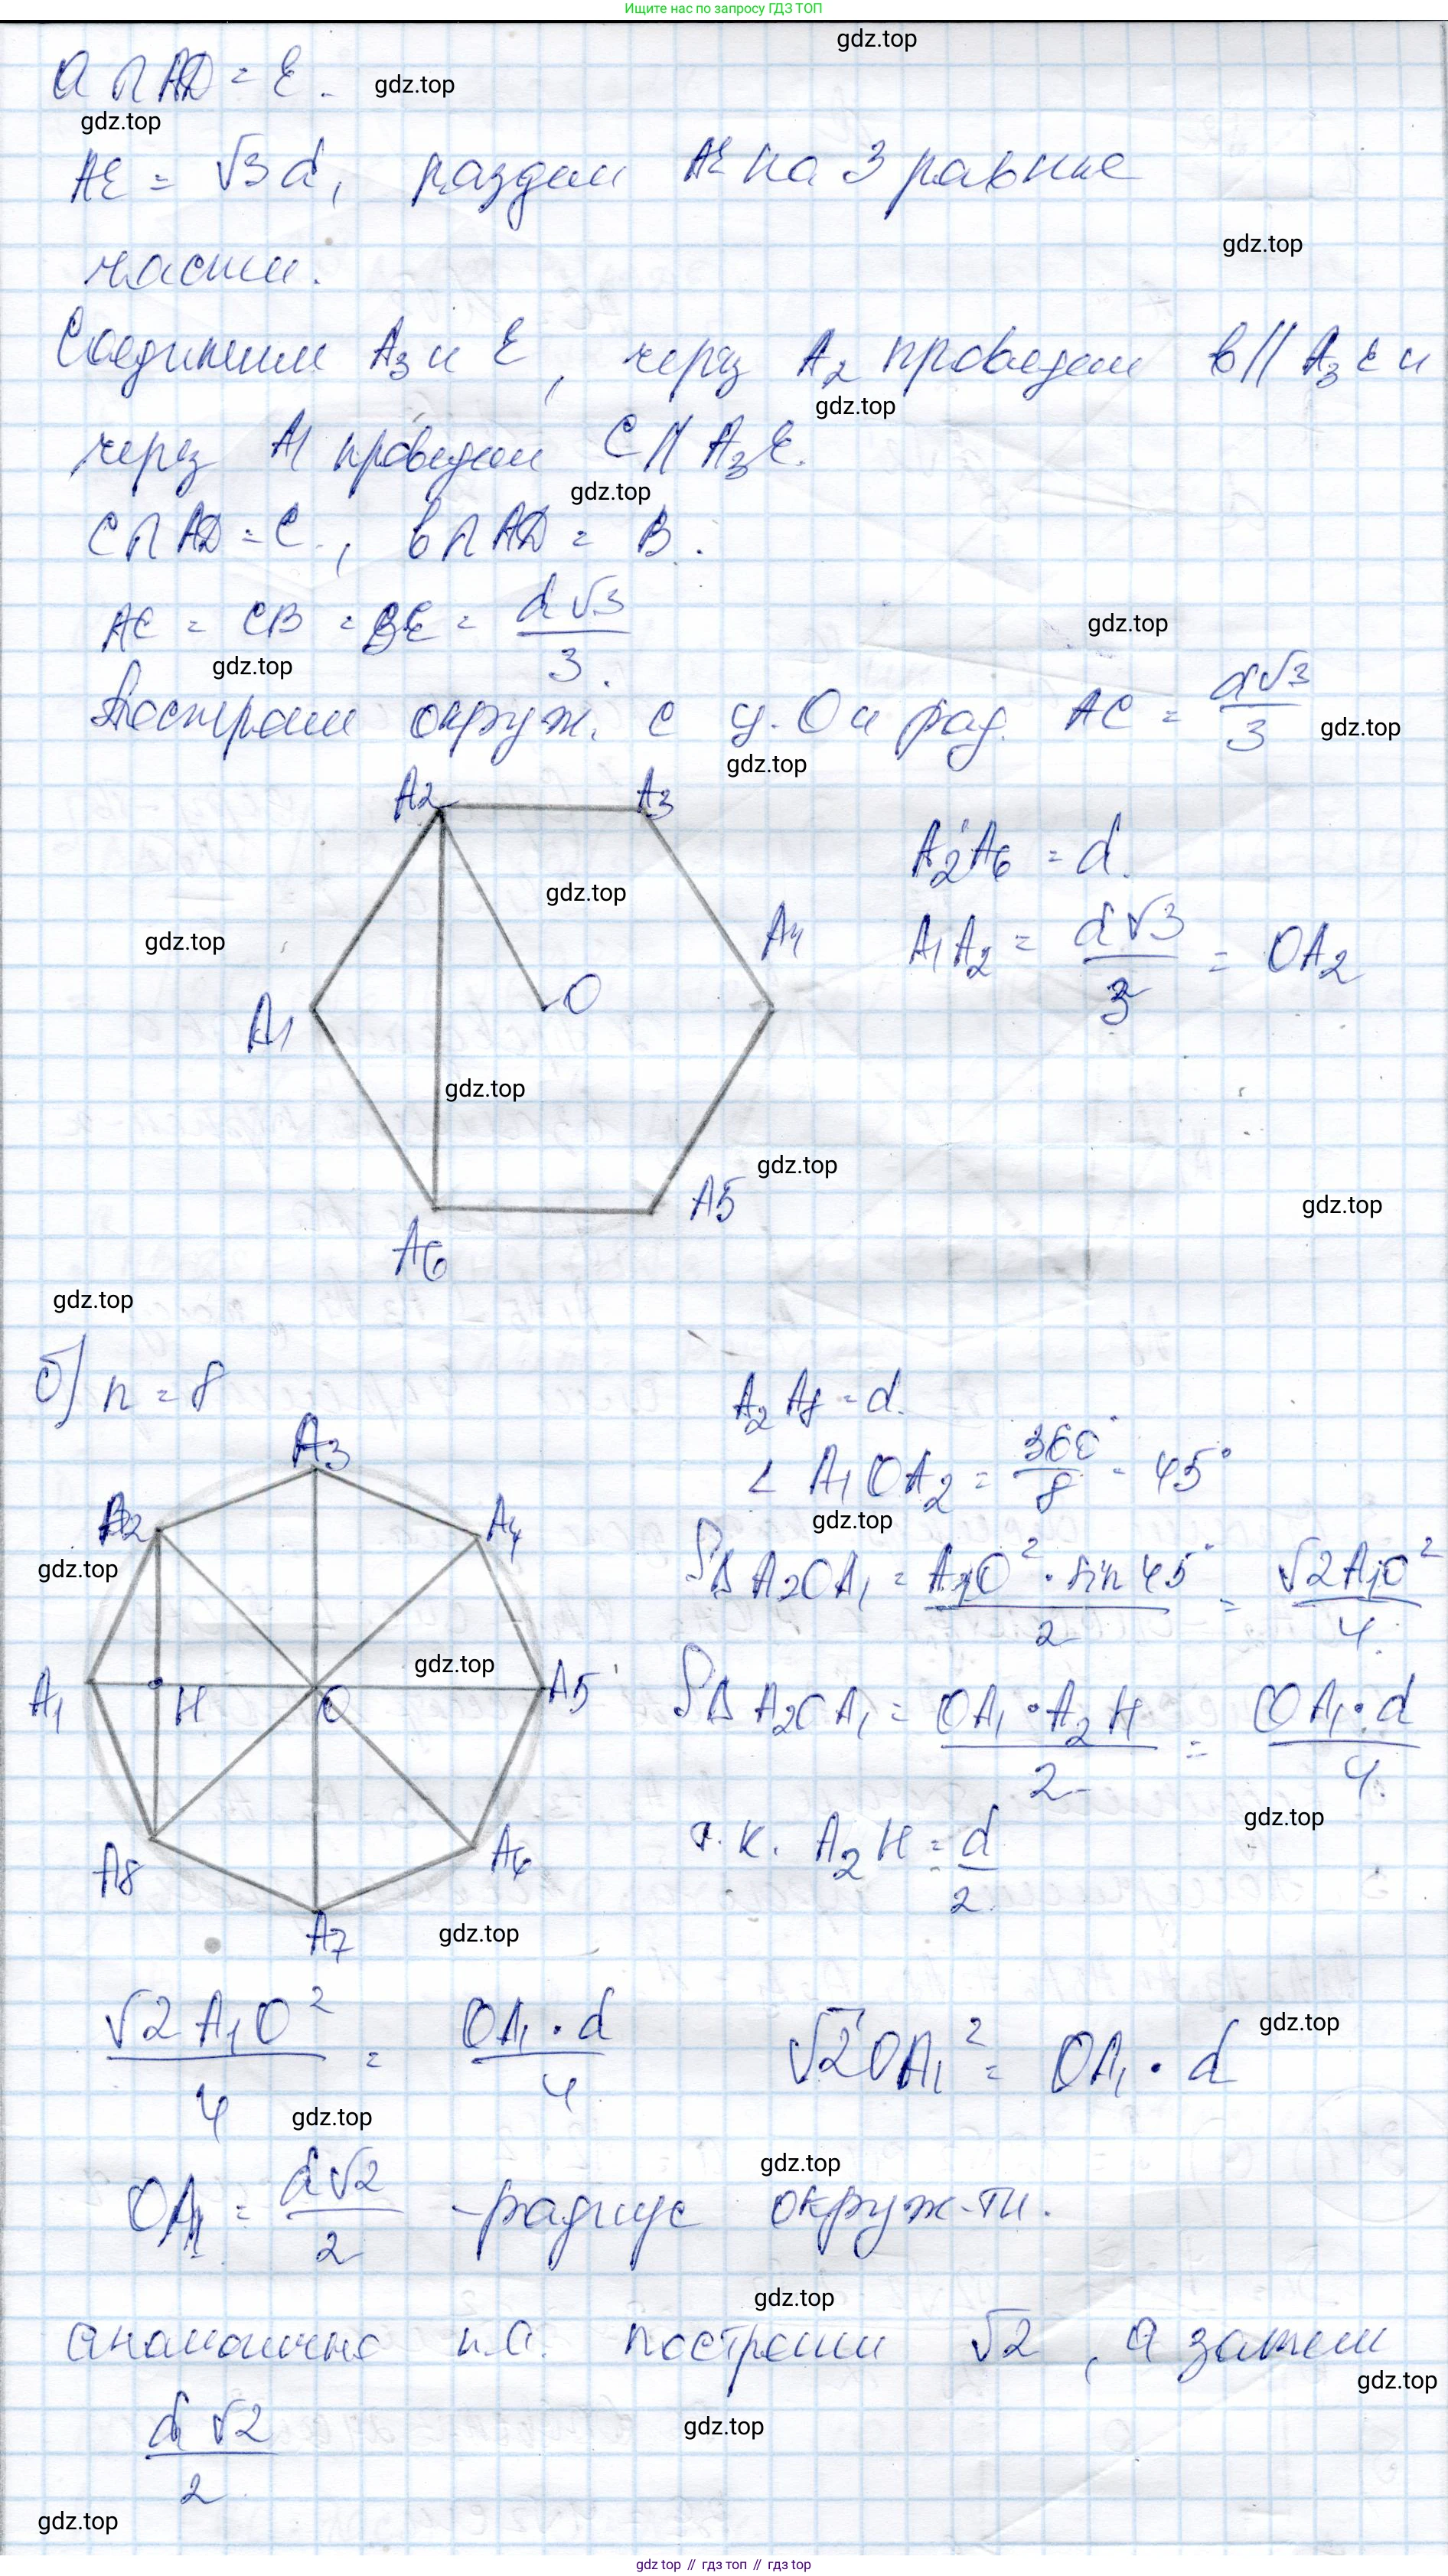 Ищите нас по запросу ГДЗ ТОП
gdz.top
a ∩ AD = E.
gdz.top
gdz.top
AE = √3 d, разделим AE на 3 равные
gdz.top
части.
Соединим A3 и E, через A2 проведем b || A3E и
gdz.top
через A1 проведем C || A3E.
gdz.top
C ∩ AD = C., b ∩ AD = B.
AC = CB = BE = d√3/3.
gdz.top
gdz.top
Построим окруж. с ц. O и рад. AC = d√3/3
gdz.top
gdz.top
A2 A3
A2A6 = d.
gdz.top
gdz.top
A4
A1A2 = d√3/3 = OA2
A1 O
gdz.top
gdz.top
A5
gdz.top
A6
gdz.top
б) n = 8
A2A8 = d.
A3
∠ A1OA2 = 360°/8 = 45°
gdz.top
A2 A4
gdz.top
S∆A2OA1 = A1O² · sin 45°/2 = √2A1O²/4.
gdz.top
A1 H O A5
S∆A2OA1 = OA1 · A2H/2 = OA1 · d/4.
gdz.top
т.к. A2H = d/2.
A8 A6
gdz.top
A7
√2A1O²/4 = OA1 · d/4
√2OA1² = OA1 · d
gdz.top
gdz.top
gdz.top
OA1 = d√2/2 - радиус окруж-ти.
gdz.top
аналогично п.а. построим √2, а затем
gdz.top
d√2/2
gdz.top
gdz.top
gdz.top // гдз топ // gdz top